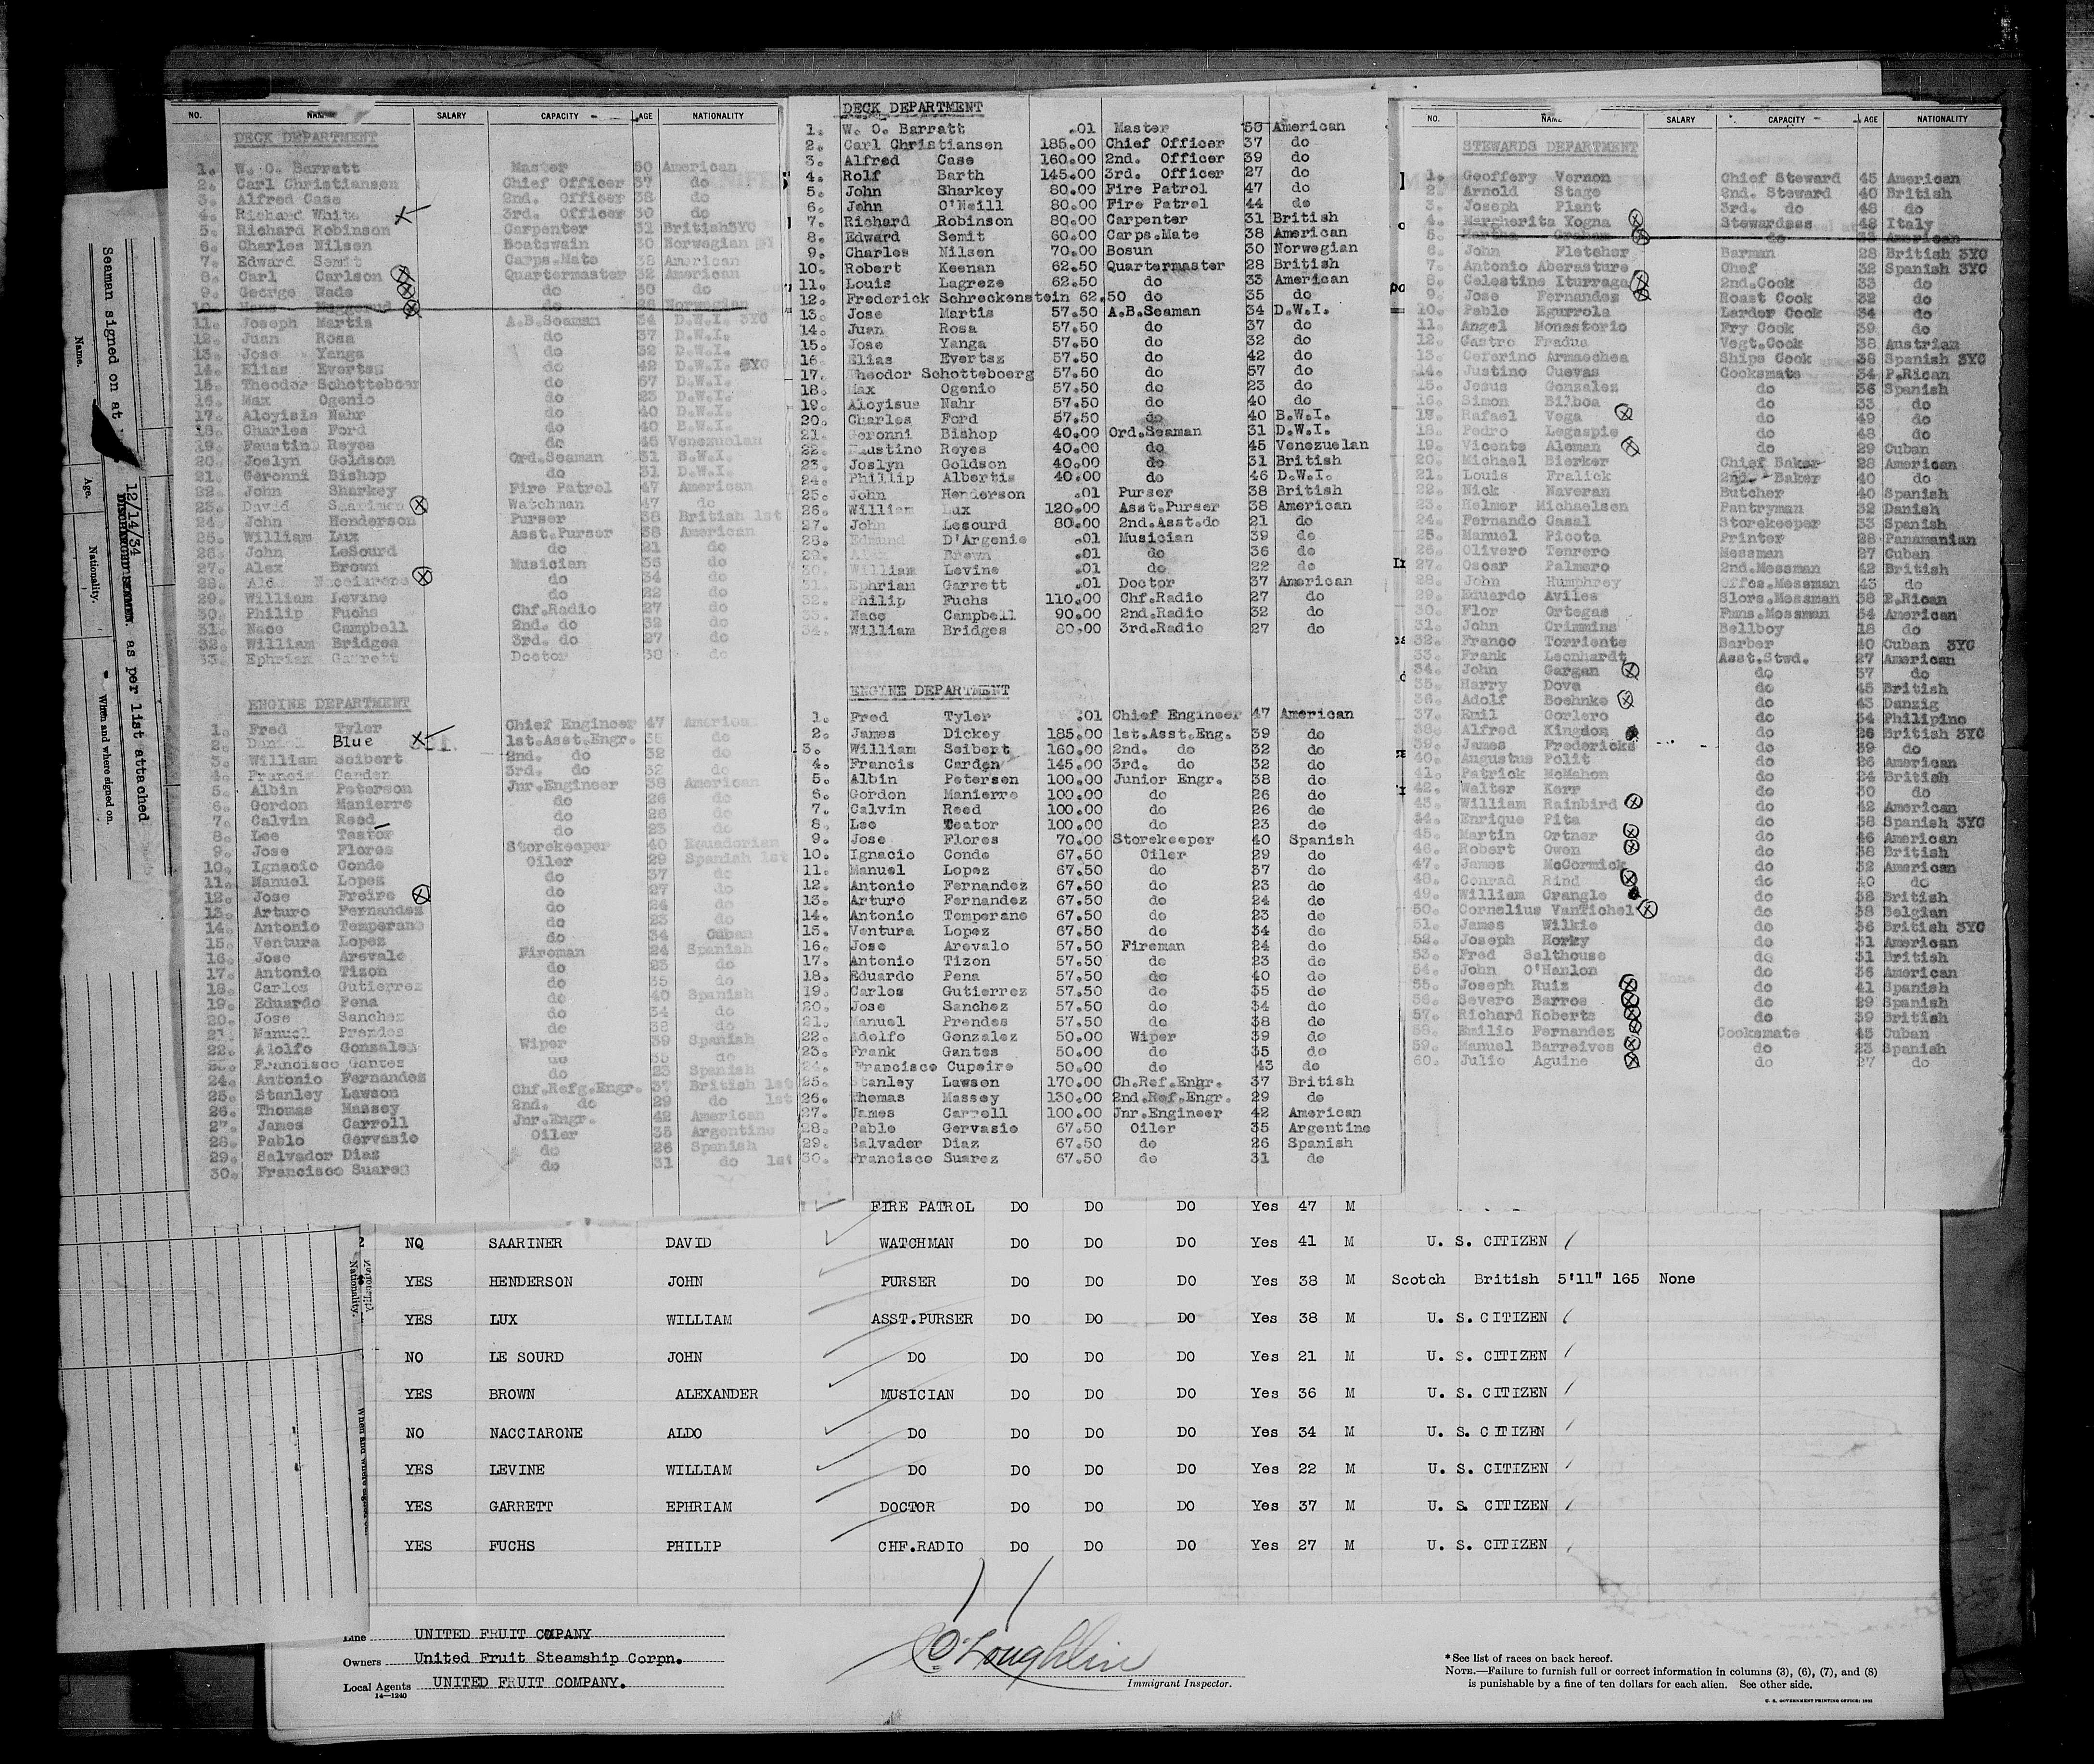 NO. NAME SALARY CAPACITY AGE NATIONALITY
DECK DEPARTMENT
1. W. O. Barratt Master 60 American
2. Carl Christiansen Chief Officer 37 do
3. Alfred Case 2nd. Officer 38 do
4. Richard White 3rd. Officer 30 do
5. Richard Robinson Carpenter 31 British 3YC
6. Charles Nilsen Boatswain 30 Norwegian
7. Edward Semit Carps.Mate 38 American
8. Carl Carlson Quartermaster 32 American
9. George Wade do 30 do
10. Hans do 26 Norwegian
11. Joseph Martis A.B.Seaman 34 D.W.I. 3YC
12. Juan Rosa do 37 D.W.I.
13. Jose Yanga do 32 D.W.I.
14. Elias Evertsz do 42 D.W.I. 3YC
15. Theodor Schotteboer do 57 D.W.I.
16. Max Ogenio do 23 D.W.I.
17. Aloyisis Nahr do 40 D.W.I.
18. Charles Ford do 40 B.W.I.
19. Faustino Reyes do 45 Venezuelan
20. Joslyn Goldson Ord.Seaman 31 B.W.I.
21. Geronni Bishop do 31 D.W.I.
22. John Sharkey Fire Patrol 47 American
23. David Saarinen Watchman 47 do
24. John Henderson Purser 38 British 1st
25. William Lux Asst.Purser 38 American
26. John LeSourd do 21 do
27. Alex Brown Musician 36 do
28. Aldo Nacciarone do 34 do
29. William Levine do 22 do
30. Philip Fuchs Chf.Radio 27 do
31. Nace Campbell 2nd. do 32 do
32. William Bridges 3rd. do 27 do
33. Ephriam Garrett Doctor 38 do
ENGINE DEPARTMENT
1. Fred Tyler Chief Engineer 47 American
2. Blue 1st.Asst.Engr. 35 do
3. William Seibert 2nd. do 32 do
4. Francis Carden 3rd. do 32 do
5. Albin Peterson Jnr.Engineer 38 American
6. Gordon Manierre do 26 do
7. Calvin Reed do 26 do
8. Lee Teator do 23 do
9. Jose Flores Storekeeper 40 Equadorian
10. Ignacio Conde Oiler 29 Spanish 1st
11. Manuel Lopez do 37 do
12. Jose Freire do 27 do
13. Arturo Fernandez do 24 do
14. Antonio Temperano do 23 do
15. Ventura Lopez do 34 Cuban
16. Jose Arevalo Fireman 24 Spanish
17. Antonio Tizon do 23 do
18. Carlos Gutierrez do 35 do
19. Eduardo Pena do 40 Spanish
20. Jose Sanchez do 34 do
21. Manuel Prendes do 38 do
22. Adolfo Gonzales Wiper 39 Spanish
23. Francisco Gantes do 35 do
24. Antonio Fernandes do 23 Spanish
25. Stanley Lawson Chf.Refg.Engr. 37 British 1st
26. Thomas Massey 2nd. do 29 do 1st
27. James Carroll Jnr.Engr. 42 American
28. Pablo Gervasio Oiler 35 Argentine
29. Salvador Diaz do 26 Spanish
30. Francisco Suarez do 31 do 1st
DECK DEPARTMENT
1. W. O. Barratt .01 Master 50 American
2. Carl Christiansen 185.00 Chief Officer 37 do
3. Alfred Case 160.00 2nd. Officer 39 do
4. Rolf Barth 145.00 3rd. Officer 27 do
5. John Sharkey 80.00 Fire Patrol 47 do
6. John O'Neill 80.00 Fire Patrol 44 do
7. Richard Robinson 80.00 Carpenter 31 British
8. Edward Semit 60.00 Carps.Mate 38 American
9. Charles Nilsen 70.00 Bosun 30 Norwegian
10. Robert Keenan 62.50 Quartermaster 28 British
11. Louis Lagreze 62.50 do 33 American
12. Frederick Schreckenstein 62.50 do 35 do
13. Jose Martis 57.50 A.B.Seaman 34 D.W.I.
14. Juan Rosa 57.50 do 37 do
15. Jose Yanga 57.50 do 32 do
16. Elias Evertsz 57.50 do 42 do
17. Theodor Schotteboerg 57.50 do 57 do
18. Max Ogenio 57.50 do 23 do
19. Aloyisus Nahr 57.50 do 40 do
20. Charles Ford 57.50 do 40 B.W.I.
21. Geronni Bishop 40.00 Ord.Seaman 31 D.W.I.
22. Faustino Reyes 40.00 do 45 Venezuelan
23. Joslyn Goldson 40.00 do 31 British
24. Phillip Albertis 40.00 do 46 D.W.I.
25. John Henderson .01 Purser 38 British
26. William Lux 120.00 Asst.Purser 38 American
27. John Lesourd 80.00 2nd.Asst.do 21 do
28. Edmund D'Argenio .01 Musician 39 do
29. Alex Brown .01 do 36 do
30. William Levine .01 do 22 do
31. Ephriam Garrett .01 Doctor 37 American
32. Philip Fuchs 110.00 Chf.Radio 27 do
33. Nace Campbell 90.00 2nd.Radio 32 do
34. William Bridges 80.00 3rd.Radio 27 do
ENGINE DEPARTMENT
1. Fred Tyler .01 Chief Engineer 47 American
2. James Dickey 185.00 1st.Asst.Eng. 39 do
3. William Seibert 160.00 2nd. do 32 do
4. Francis Carden 145.00 3rd. do 32 do
5. Albin Petersen 100.00 Junior Engr. 38 do
6. Gordon Manierre 100.00 do 26 do
7. Calvin Reed 100.00 do 26 do
8. Lee Teator 100.00 do 23 do
9. Jose Flores 70.00 Storekeeper 40 Spanish
10. Ignacio Conde 67.50 Oiler 29 do
11. Manuel Lopez 67.50 do 37 do
12. Antonio Fernandez 67.50 do 23 do
13. Arturo Fernandez 67.50 do 24 do
14. Antonio Temperano 67.50 do 23 do
15. Ventura Lopez 67.50 do 34 do
16. Jose Arevalo 57.50 Fireman 24 do
17. Antonio Tizon 57.50 do 23 do
18. Eduardo Pena 57.50 do 40 do
19. Carlos Gutierrez 57.50 do 35 do
20. Jose Sanchez 57.50 do 34 do
21. Manuel Prendes 57.50 do 38 do
22. Adolfo Gonzalez 50.00 Wiper 39 do
23. Frank Gantes 50.00 do 35 do
24. Francisco Cupeiro 50.00 do 43 do
25. Stanley Lawson 170.00 Ch.Ref.Engr. 37 British
26. Thomas Massey 130.00 2nd.Ref.Engr. 29 do
27. James Carroll 100.00 Jnr.Engineer 42 American
28. Pablo Gervasio 67.50 Oiler 35 Argentine
29. Salvador Diaz 67.50 do 26 Spanish
30. Francisco Suarez 67.50 do 31 do
NO. NAME SALARY CAPACITY AGE NATIONALITY
STEWARDS DEPARTMENT
1. Geoffery Vernon Chief Steward 45 American
2. Arnold Stage 2nd. Steward 40 British
3. Joseph Plant 3rd. do 48 do
4. Margherita Yogna Stewardess 48 Italy
5. Martha Graham do 33 American
6. John Fletcher Barman 28 British 3YC
7. Antonio Aberasture Chef 32 Spanish 3YC
8. Celestino Iturraga 2nd.Cook 33 do
9. Jose Fernandes Roast Cook 32 do
10. Pablo Egurrola Larder Cook 34 do
11. Angel Monasterio Fry Cook 39 do
12. Castro Fradua Vegt.Cook 38 Austrian
13. Ceferino Armaechea Ships Cook 36 Spanish 3YC
14. Justino Cuevas Cooksmate 34 P.Rican
15. Jesus Gonzalez do 36 Spanish
16. Simon Bilboa do 33 do
17. Rafael Vega do 49 do
18. Pedro Legaspie do 48 do
19. Vicente Aleman do 29 Cuban
20. Michael Bierker Chief Baker 28 American
21. Louis Fralick 2nd. Baker 40 do
22. Nick Naveran Butcher 40 Spanish
23. Helmer Michaelsen Pantryman 32 Danish
24. Fernando Casal Storekeeper 33 Spanish
25. Manuel Picota Printer 28 Panamanian
26. Olivero Tenrero Messman 27 Cuban
27. Oscar Palmero 2nd.Messman 42 British
28. John Humphrey Offcs.Messman 43 do
29. Eduardo Aviles Slors.Messman 38 P.Rican
30. Flor Ortegas Fmns.Messman 34 American
31. John Crimmins Bellboy 18 do
32. Franco Torriente Barber 40 Cuban 3YC
33. Frank Leonhardt Asst.Stwd. 27 American
34. John Gargan do 37 do
35. Harry Dova do 45 British
36. Adolf Boehnke do 43 Danzig
37. Emil Gorlero do 34 Philipino
38. Alfred Kingdon do 26 British 3YC
39. James Fredericks do 39 do
40. Augustus Polit do 26 American
41. Patrick McMahon do 24 British
42. Walter Kerr do 30 do
43. William Rainbird do 42 American
44. Enrique Pita do 38 Spanish 3YC
45. Martin Ortner do 46 American
46. Robert Owen do 38 British
47. James McCormick do 32 American
48. Conrad Rind do 40 do
49. William Crangle do 38 British
50. Cornelius VanTichel do 38 Belgian
51. James Wilkie do 36 British 3YC
52. Joseph Horky do 31 American
53. Fred Salthouse do 31 British
54. John O'Hanlon do 36 American
55. Joseph Ruiz do 41 Spanish
56. Severo Barros do 29 Spanish
57. Richard Roberts do 39 British
58. Emilio Fernandez Cooksmate 45 Cuban
59. Manuel Barreivos do 23 Spanish
60. Julio Aguine do 27 do
Seaman signed on at
12/14/34
as per list attached
Name.
Age.
Nationality.
When and where signed on.
Nationality.
FIRE PATROL DO DO DO Yes 47 M
NO SAARINER DAVID WATCHMAN DO DO DO Yes 41 M U. S. CITIZEN
YES HENDERSON JOHN PURSER DO DO DO Yes 38 M Scotch British 5'11" 165 None
YES LUX WILLIAM ASST.PURSER DO DO DO Yes 38 M U. S. CITIZEN
NO LE SOURD JOHN DO DO DO DO Yes 21 M U. S. CITIZEN
YES BROWN ALEXANDER MUSICIAN DO DO DO Yes 36 M U. S. CITIZEN
NO NACCIARONE ALDO DO DO DO DO Yes 34 M U. S. CITIZEN
YES LEVINE WILLIAM DO DO DO DO Yes 22 M U. S. CITIZEN
YES GARRETT EPHRIAM DOCTOR DO DO DO Yes 37 M U. S. CITIZEN
YES FUCHS PHILIP CHF.RADIO DO DO DO Yes 27 M U. S. CITIZEN
Line UNITED FRUIT COMPANY
Owners United Fruit Steamship Corpn.
Local Agents UNITED FRUIT COMPANY.
14—1240
O'Loughlin
Immigrant Inspector.
*See list of races on back hereof.
NOTE.—Failure to furnish full or correct information in columns (3), (6), (7), and (8)
is punishable by a fine of ten dollars for each alien. See other side.
U. S. GOVERNMENT PRINTING OFFICE: 1932